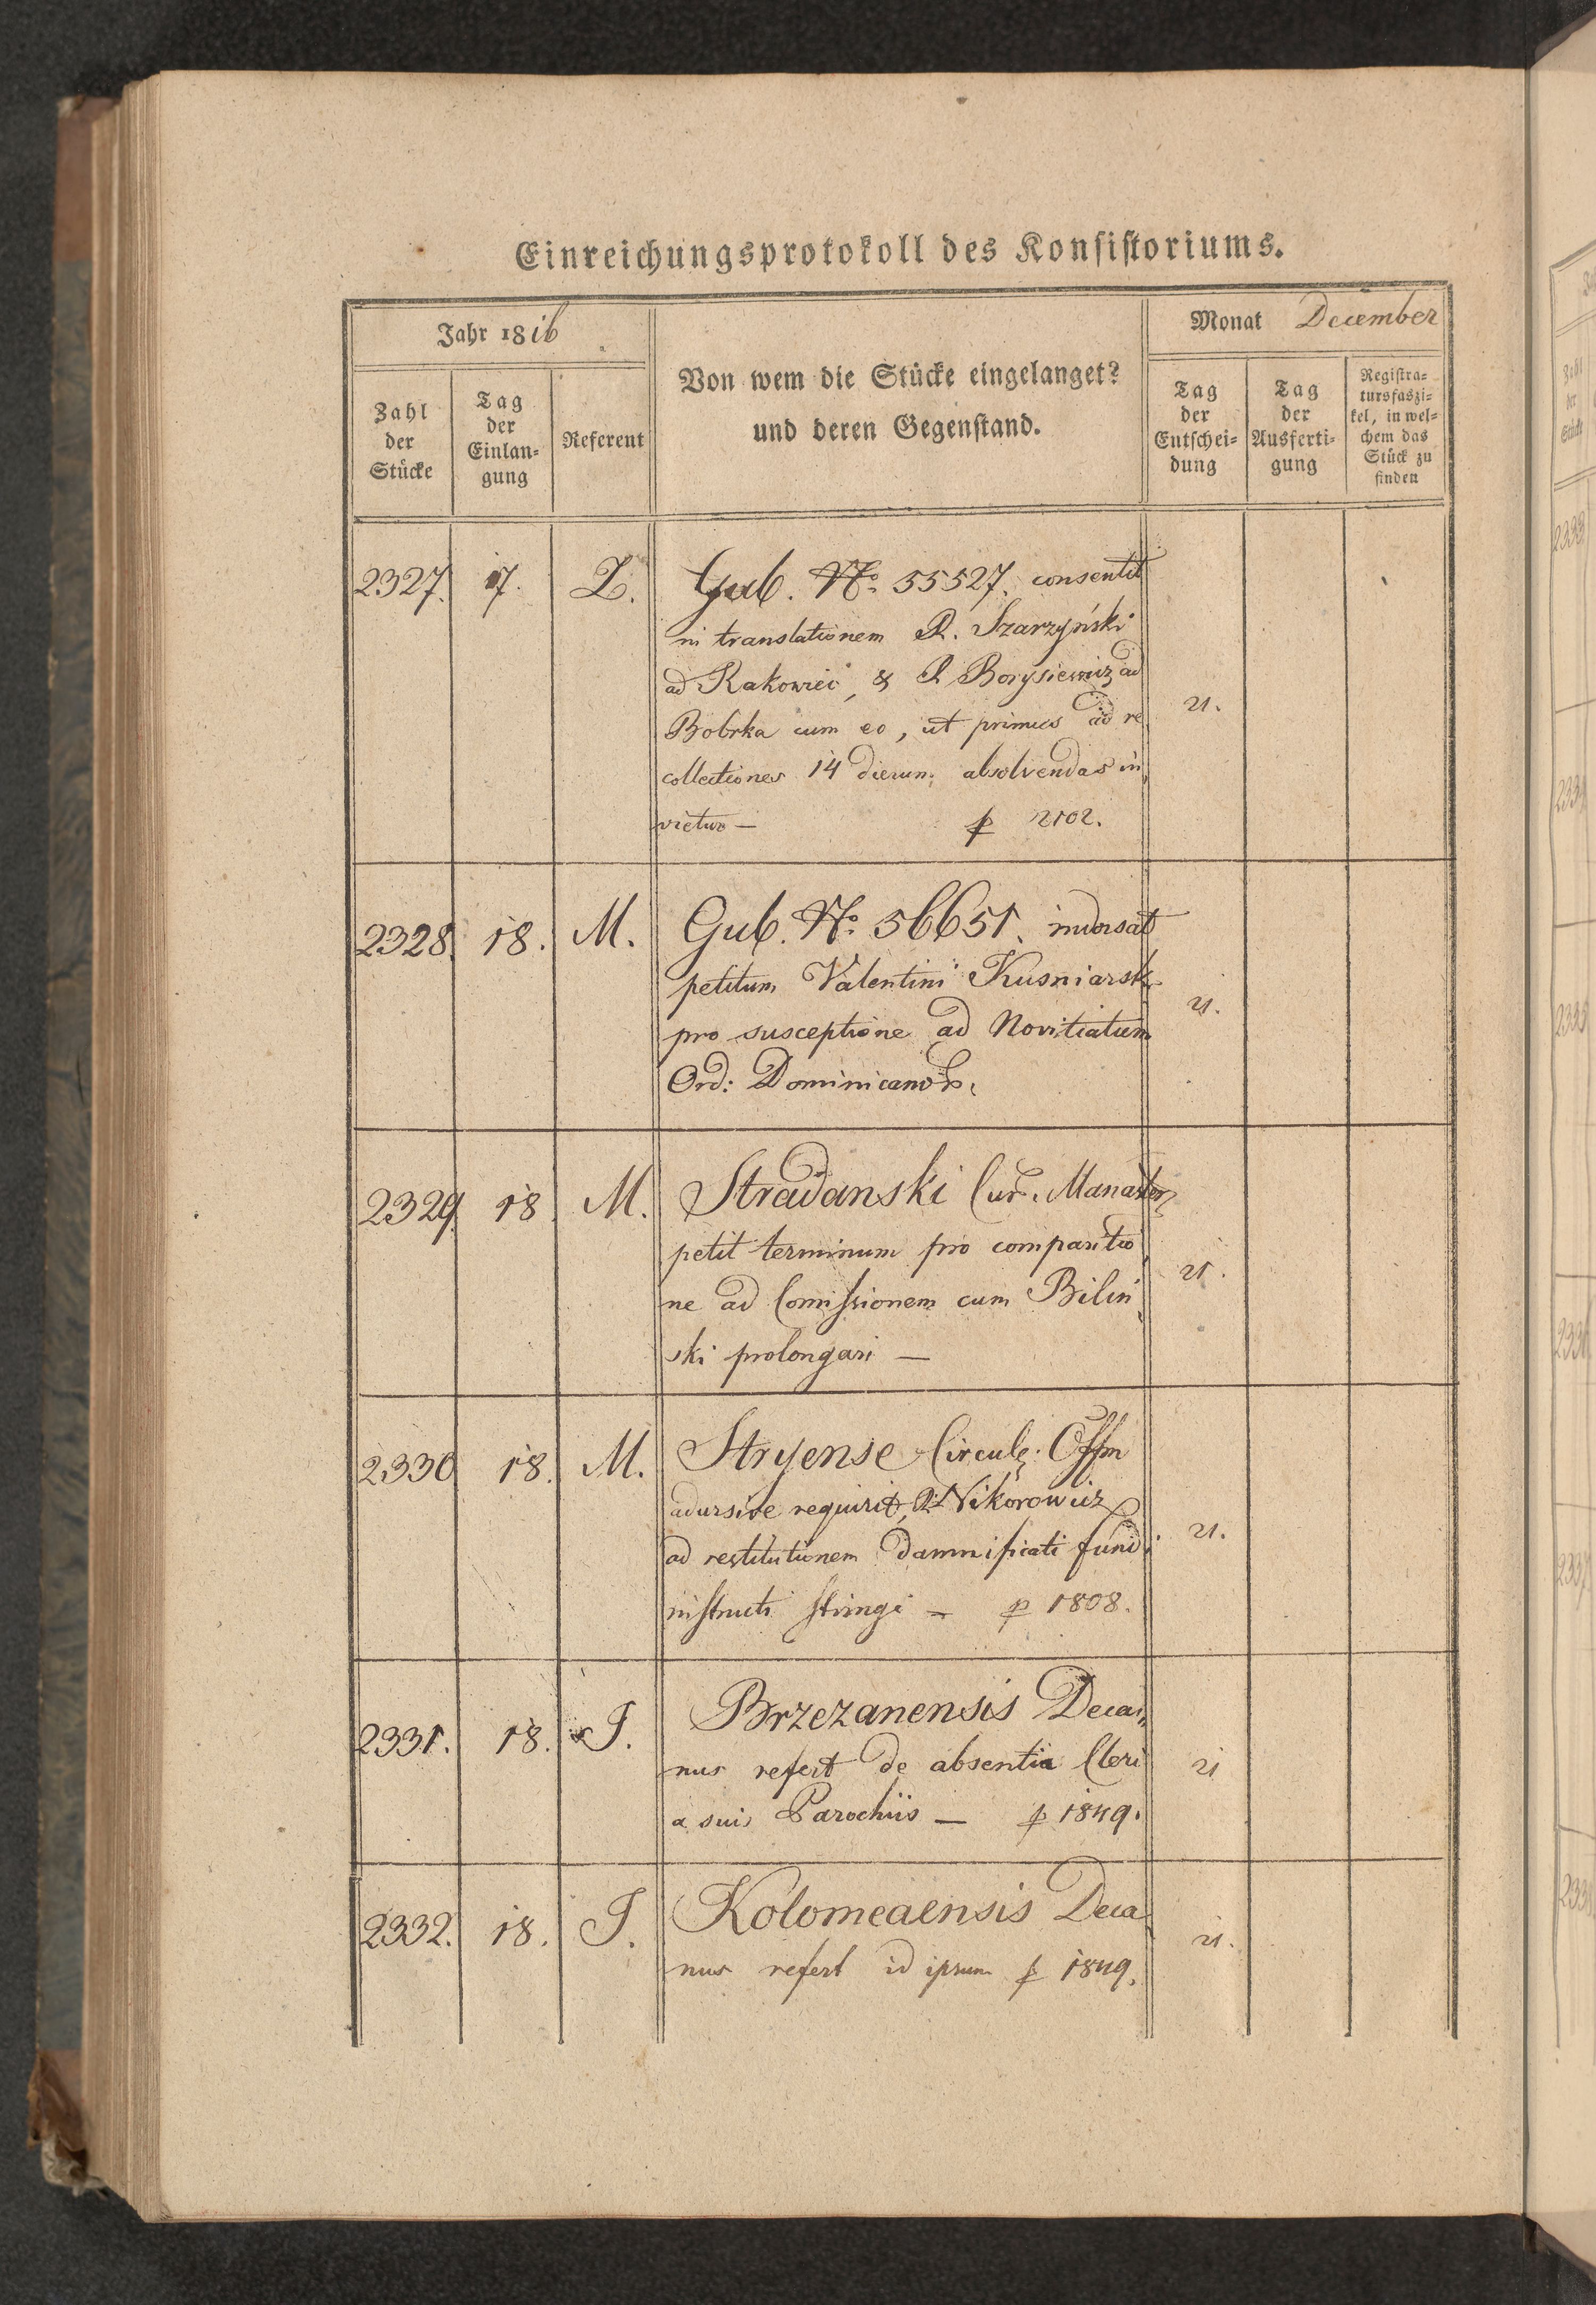 Einreichungsprotokoll des Konsistoriums.
Jahr 1816
Monat December
Zahl der Stücke
Tag der Einlan-gung
Referent
Von wem die Stücke eingelanget? und deren Gegenstand.
Tag der Entschei-dung
Tag der Ausferti-gung
Registra-tursfaszi-kel, in wel-chem das Stück zu finden
2327. 17. Z. Gub. No. 55527. consentit
in translationem R. Szarzyński
ad Rakowiec, & R Borysiewicz ad
Bobrka cum eo, ut primus ad re
collectiones 14 dierum absolvendas in, 21.
vietur — p 2102.
2328. 18. M. Gub. No. 56651. indorsat
petitum Valentini Kusniarsk
pro susceptione ad Novitiatum 21.
Ord: Dominicanor.
2329. 18 M. Stradanski Cur. Manaster
petit terminum pro comparitio
ne ad Comissionem cum Bilin 21.
ski prolongari —
2330 18. M. Stryense Circul: Offm
adursive requirit, R. Nikorowicz
ad restitutionem damnificati fundi 21.
instructi stringi — p 1808.
2331. 18. J. Brzezanensis Deca„
nus refert de absentia Cleri 21
a suis Parochiis — p 1849.
2332. 18. J. Kolomeaensis Deca
nus refert id ipsum p 1849. 21.